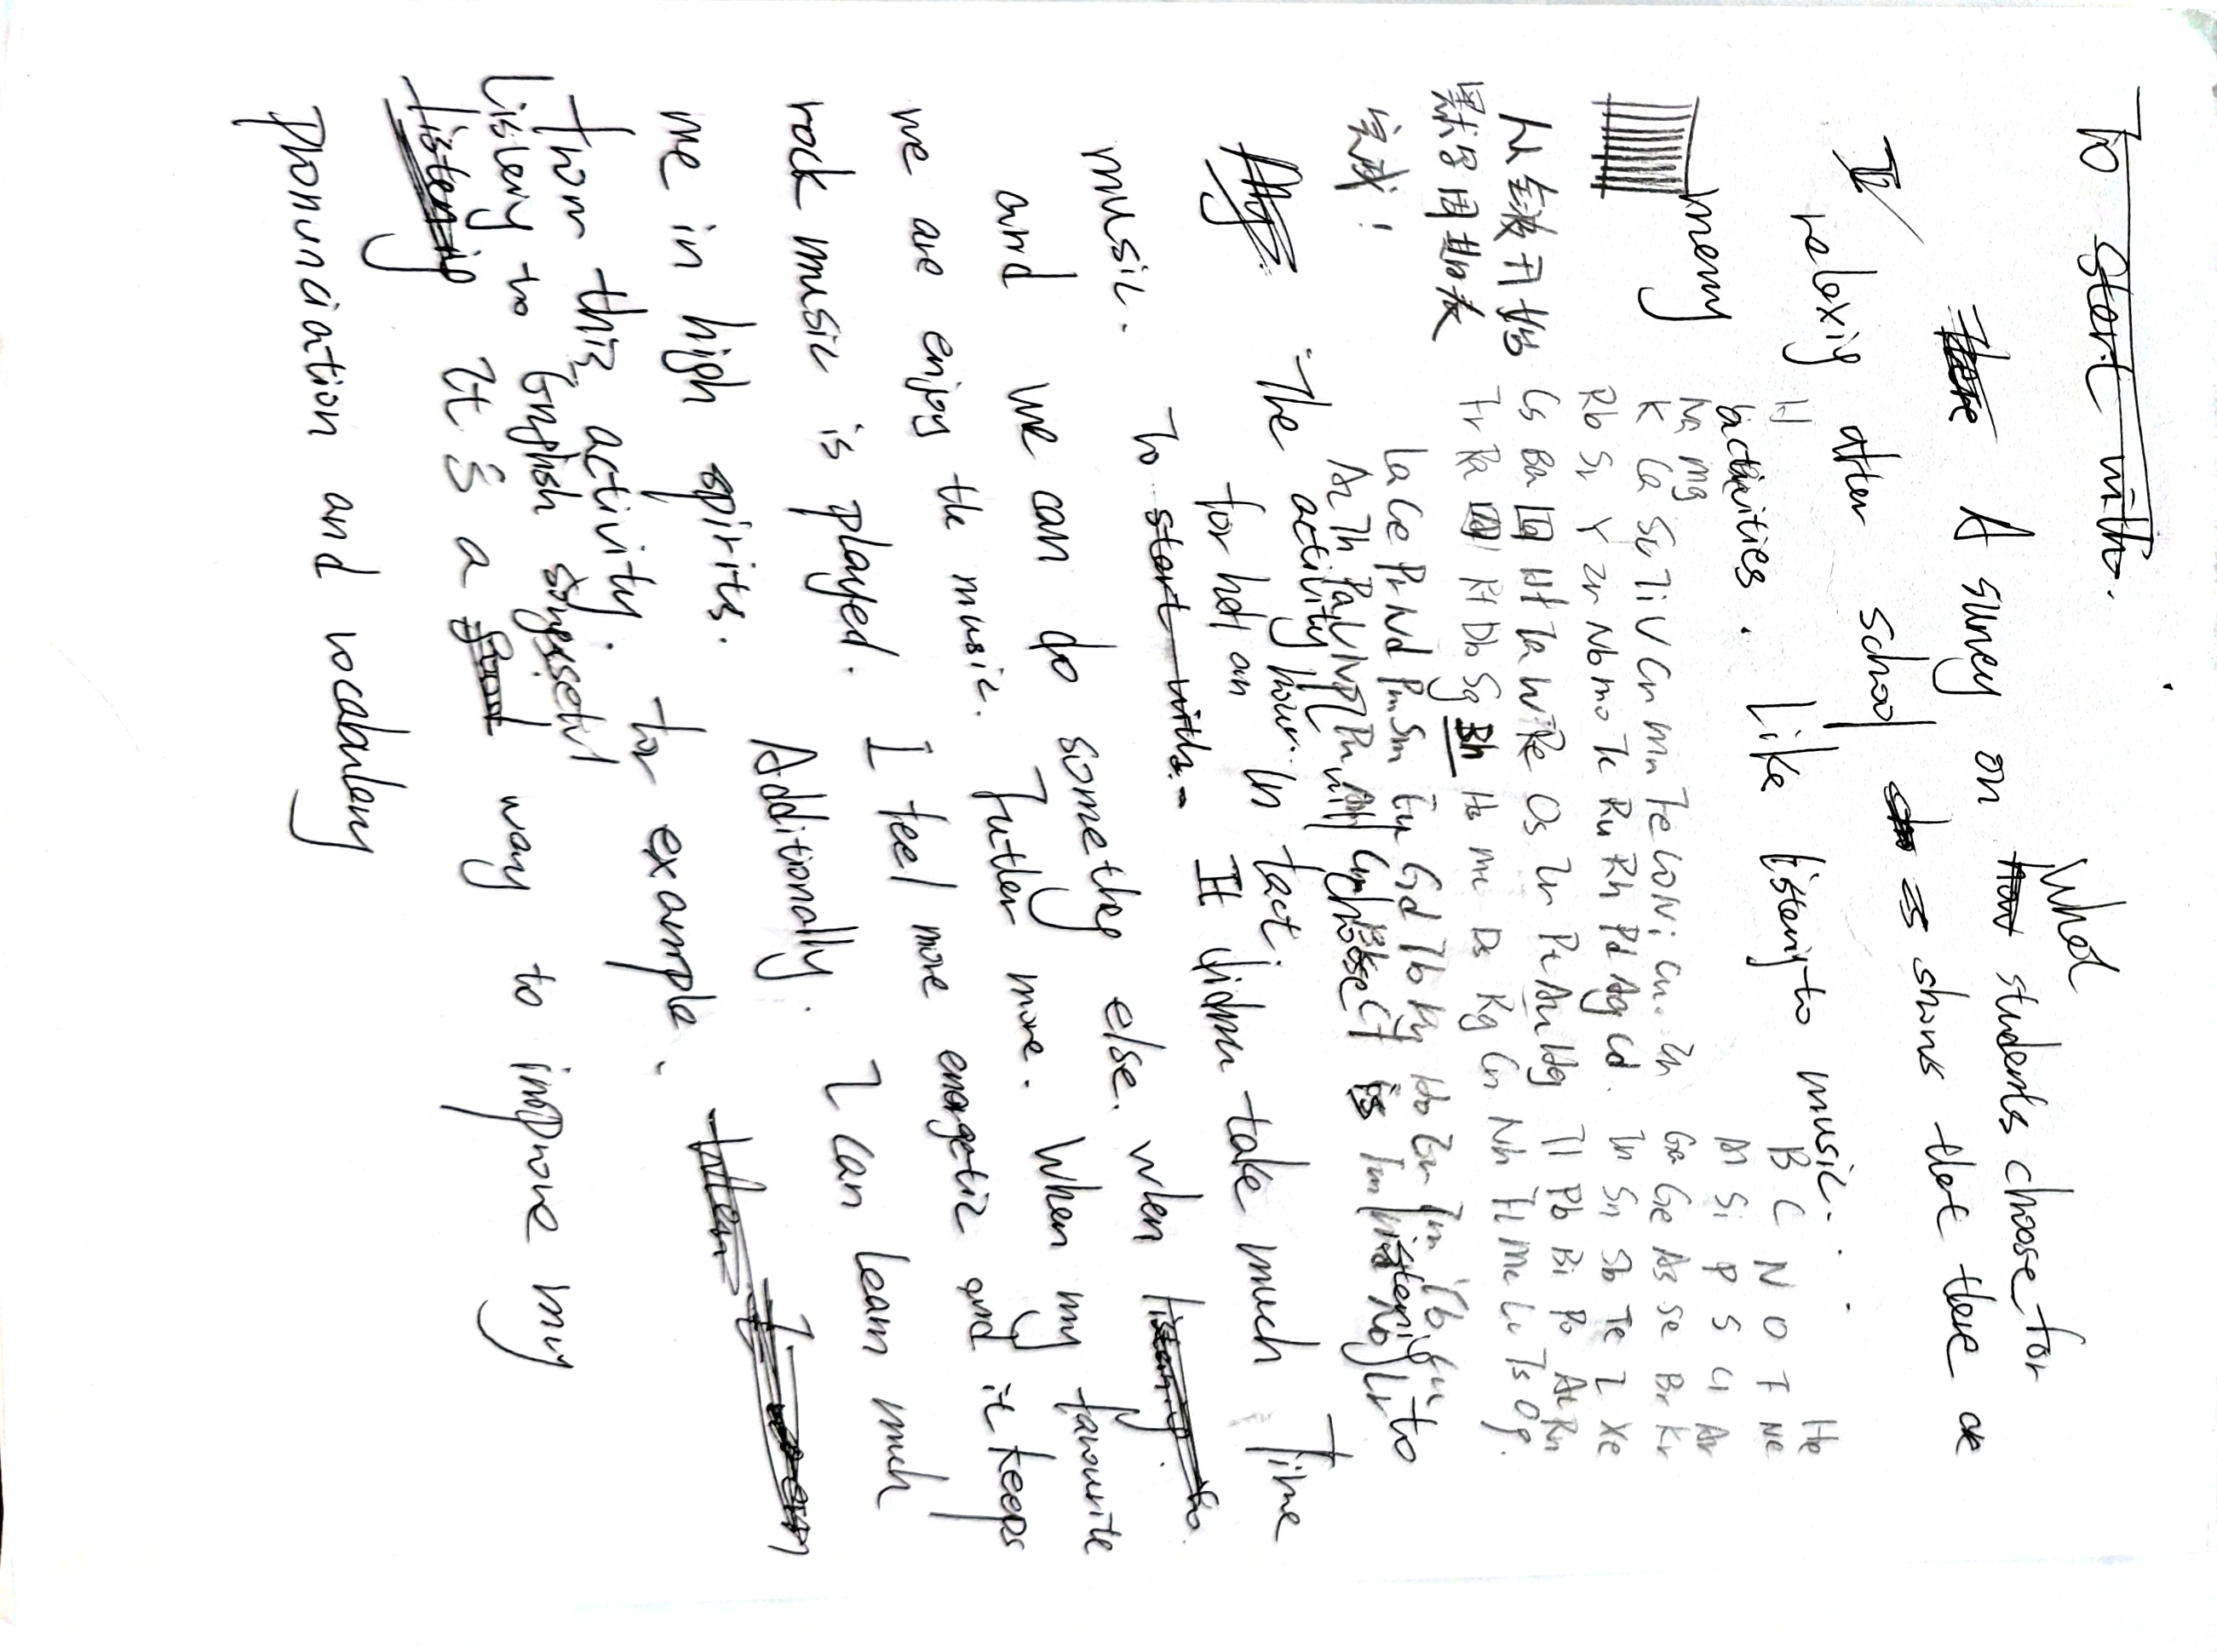 To start with.
What
A survey on students choose for
relaxig after school shows that there are
many activities. like listening to music.
H He
B C N O F Ne
Na Mg Al Si P S Cl Ar
K Ca Sc Ti V Cr Mn Fe Co Ni Cu Zn Ga Ge As Se Br Kr
Rb Sr Y Zr Nb Mo Tc Ru Rh Pd Ag Cd In Sn Sb Te I Xe
Cs Ba La Hf Ta W Re Os Ir Pt Au Hg Tl Pb Bi Po At Rn
Fr Ra Rf Db Sg Bh Hs Mt Ds Rg Cn Nh Fl Mc Lv Ts Og.
La Ce Pr Nd Pm Sm Eu Gd Tb Dy Ho Er Tm Yb Lu
Ac Th Pa U Np Pu Am Cm Bk Cf Es Fm Md No Lr
从
默写周期表
完成!
The activity I will choose is listening to
music. for half an hour. In fact, It didn't take much Time
to start with.
and we can do something else. when listening to
we are enjoy the music. Futher more. When my favourite
rock music is played. I feel more energetic and it keeps
me in high spirits. Additionally. I can learn much
from this activity. for example.
Listeng to English songs
listenig It is a good way to improve my
pronunciation and vocabulary